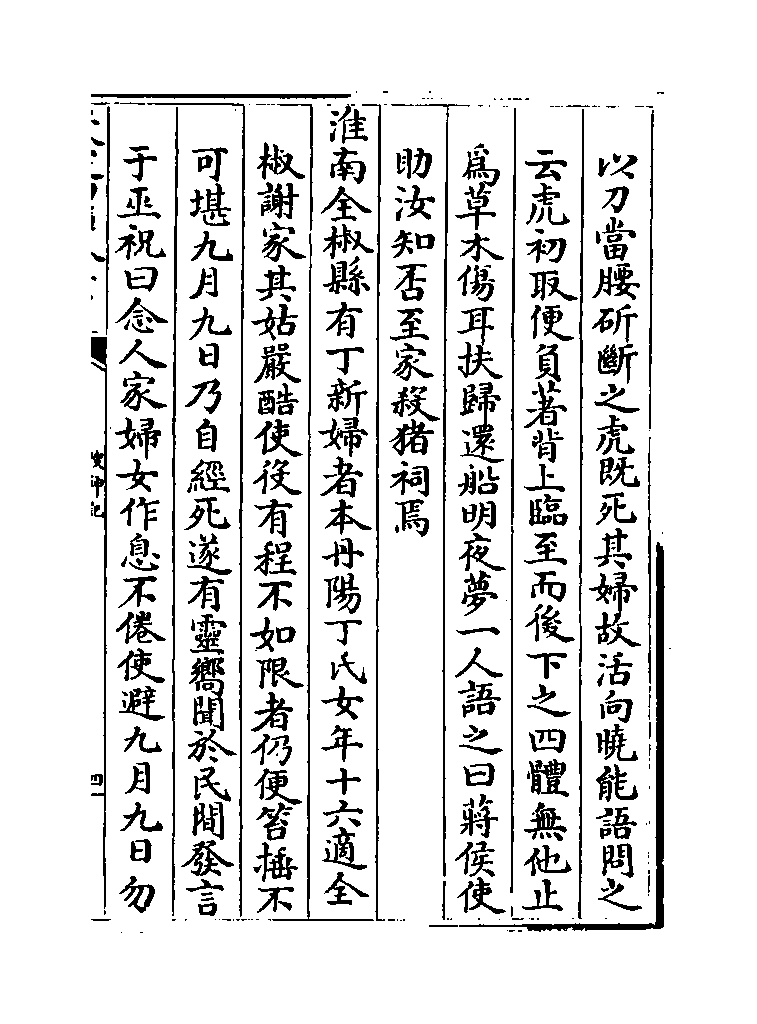 以刀當腰斫斷之虎既死其婦故活向曉能語問之
云虎初取便負著背上臨至而後下之四體無他止
爲草木傷耳扶歸還船明夜夢一人語之曰蔣侯使
助汝知否至家殺猪祠焉
淮南全椒縣有丁新婦者本丹陽丁氏女年十六適全
椒謝家其姑嚴酷使役有程不如限者仍便笞捶不
可堪九月九日乃自經死遂有靈嚮聞於民間發言
于巫祝曰念人家婦女作息不倦使避九月九日勿
搜神記
四